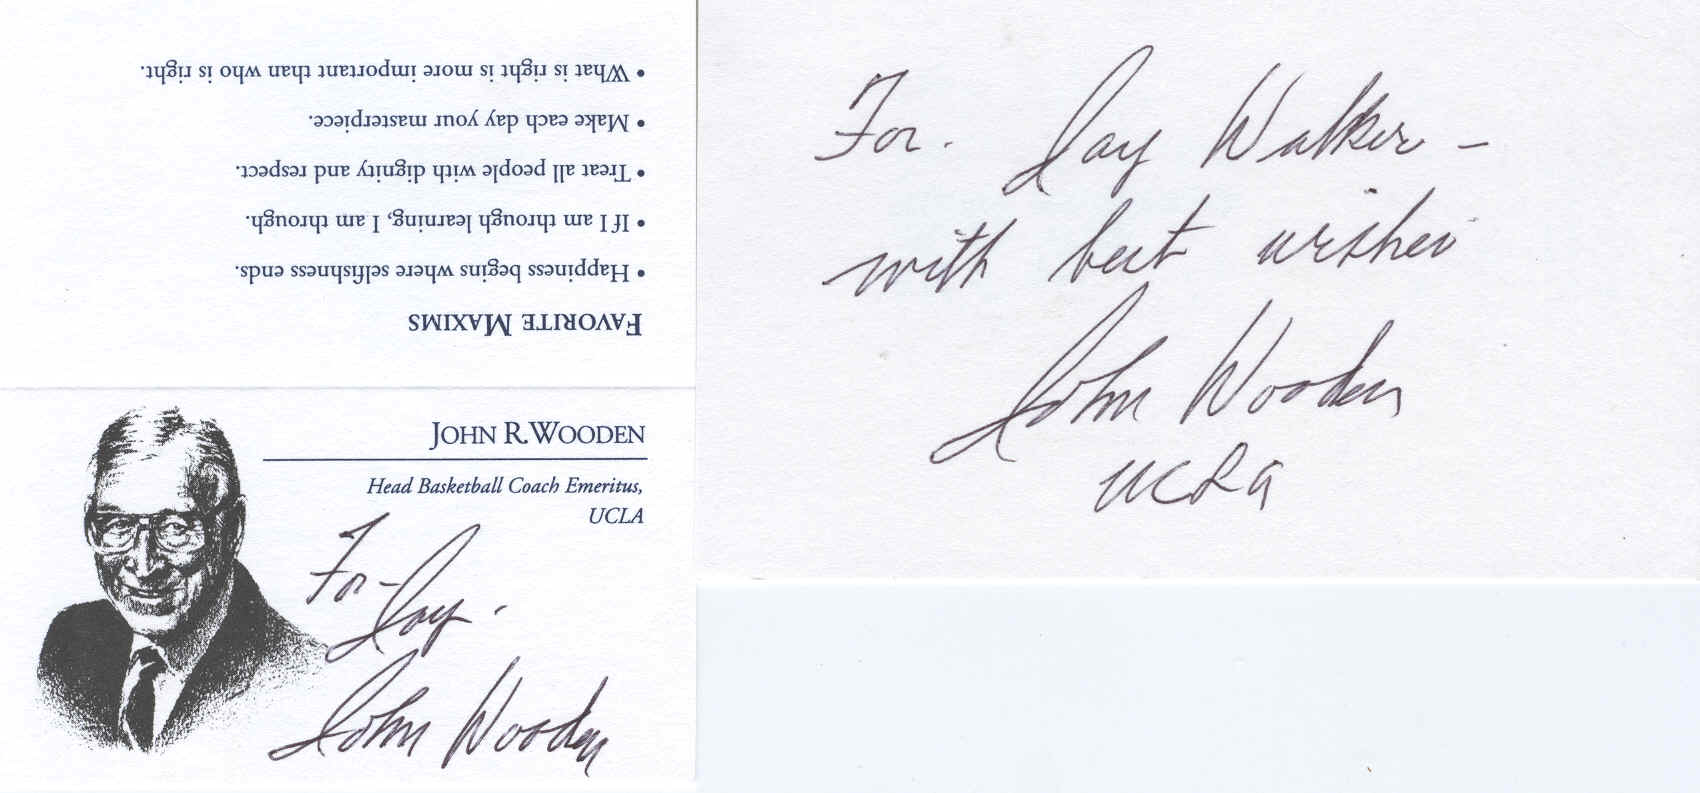 FAVORITE MAXIMS
• Happiness begins where selfishness ends.
• If I am through learning, I am through.
• Treat all people with dignity and respect.
• Make each day your masterpiece.
• What is right is more important than who is right.
JOHN R. WOODEN
Head Basketball Coach Emeritus,
UCLA
For-
Jay.
John Wooden
For. Jay Walker -
with best wishes
John Wooden
UCLA